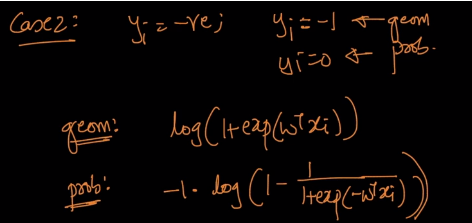 Case 2: yi = -ve; yi = -1 ← geom
yi = 0 ← prob.
geom: log(1+exp(wᵀxi))
prob: -1 · log(1 - 1/(1+exp(-wᵀxi)))